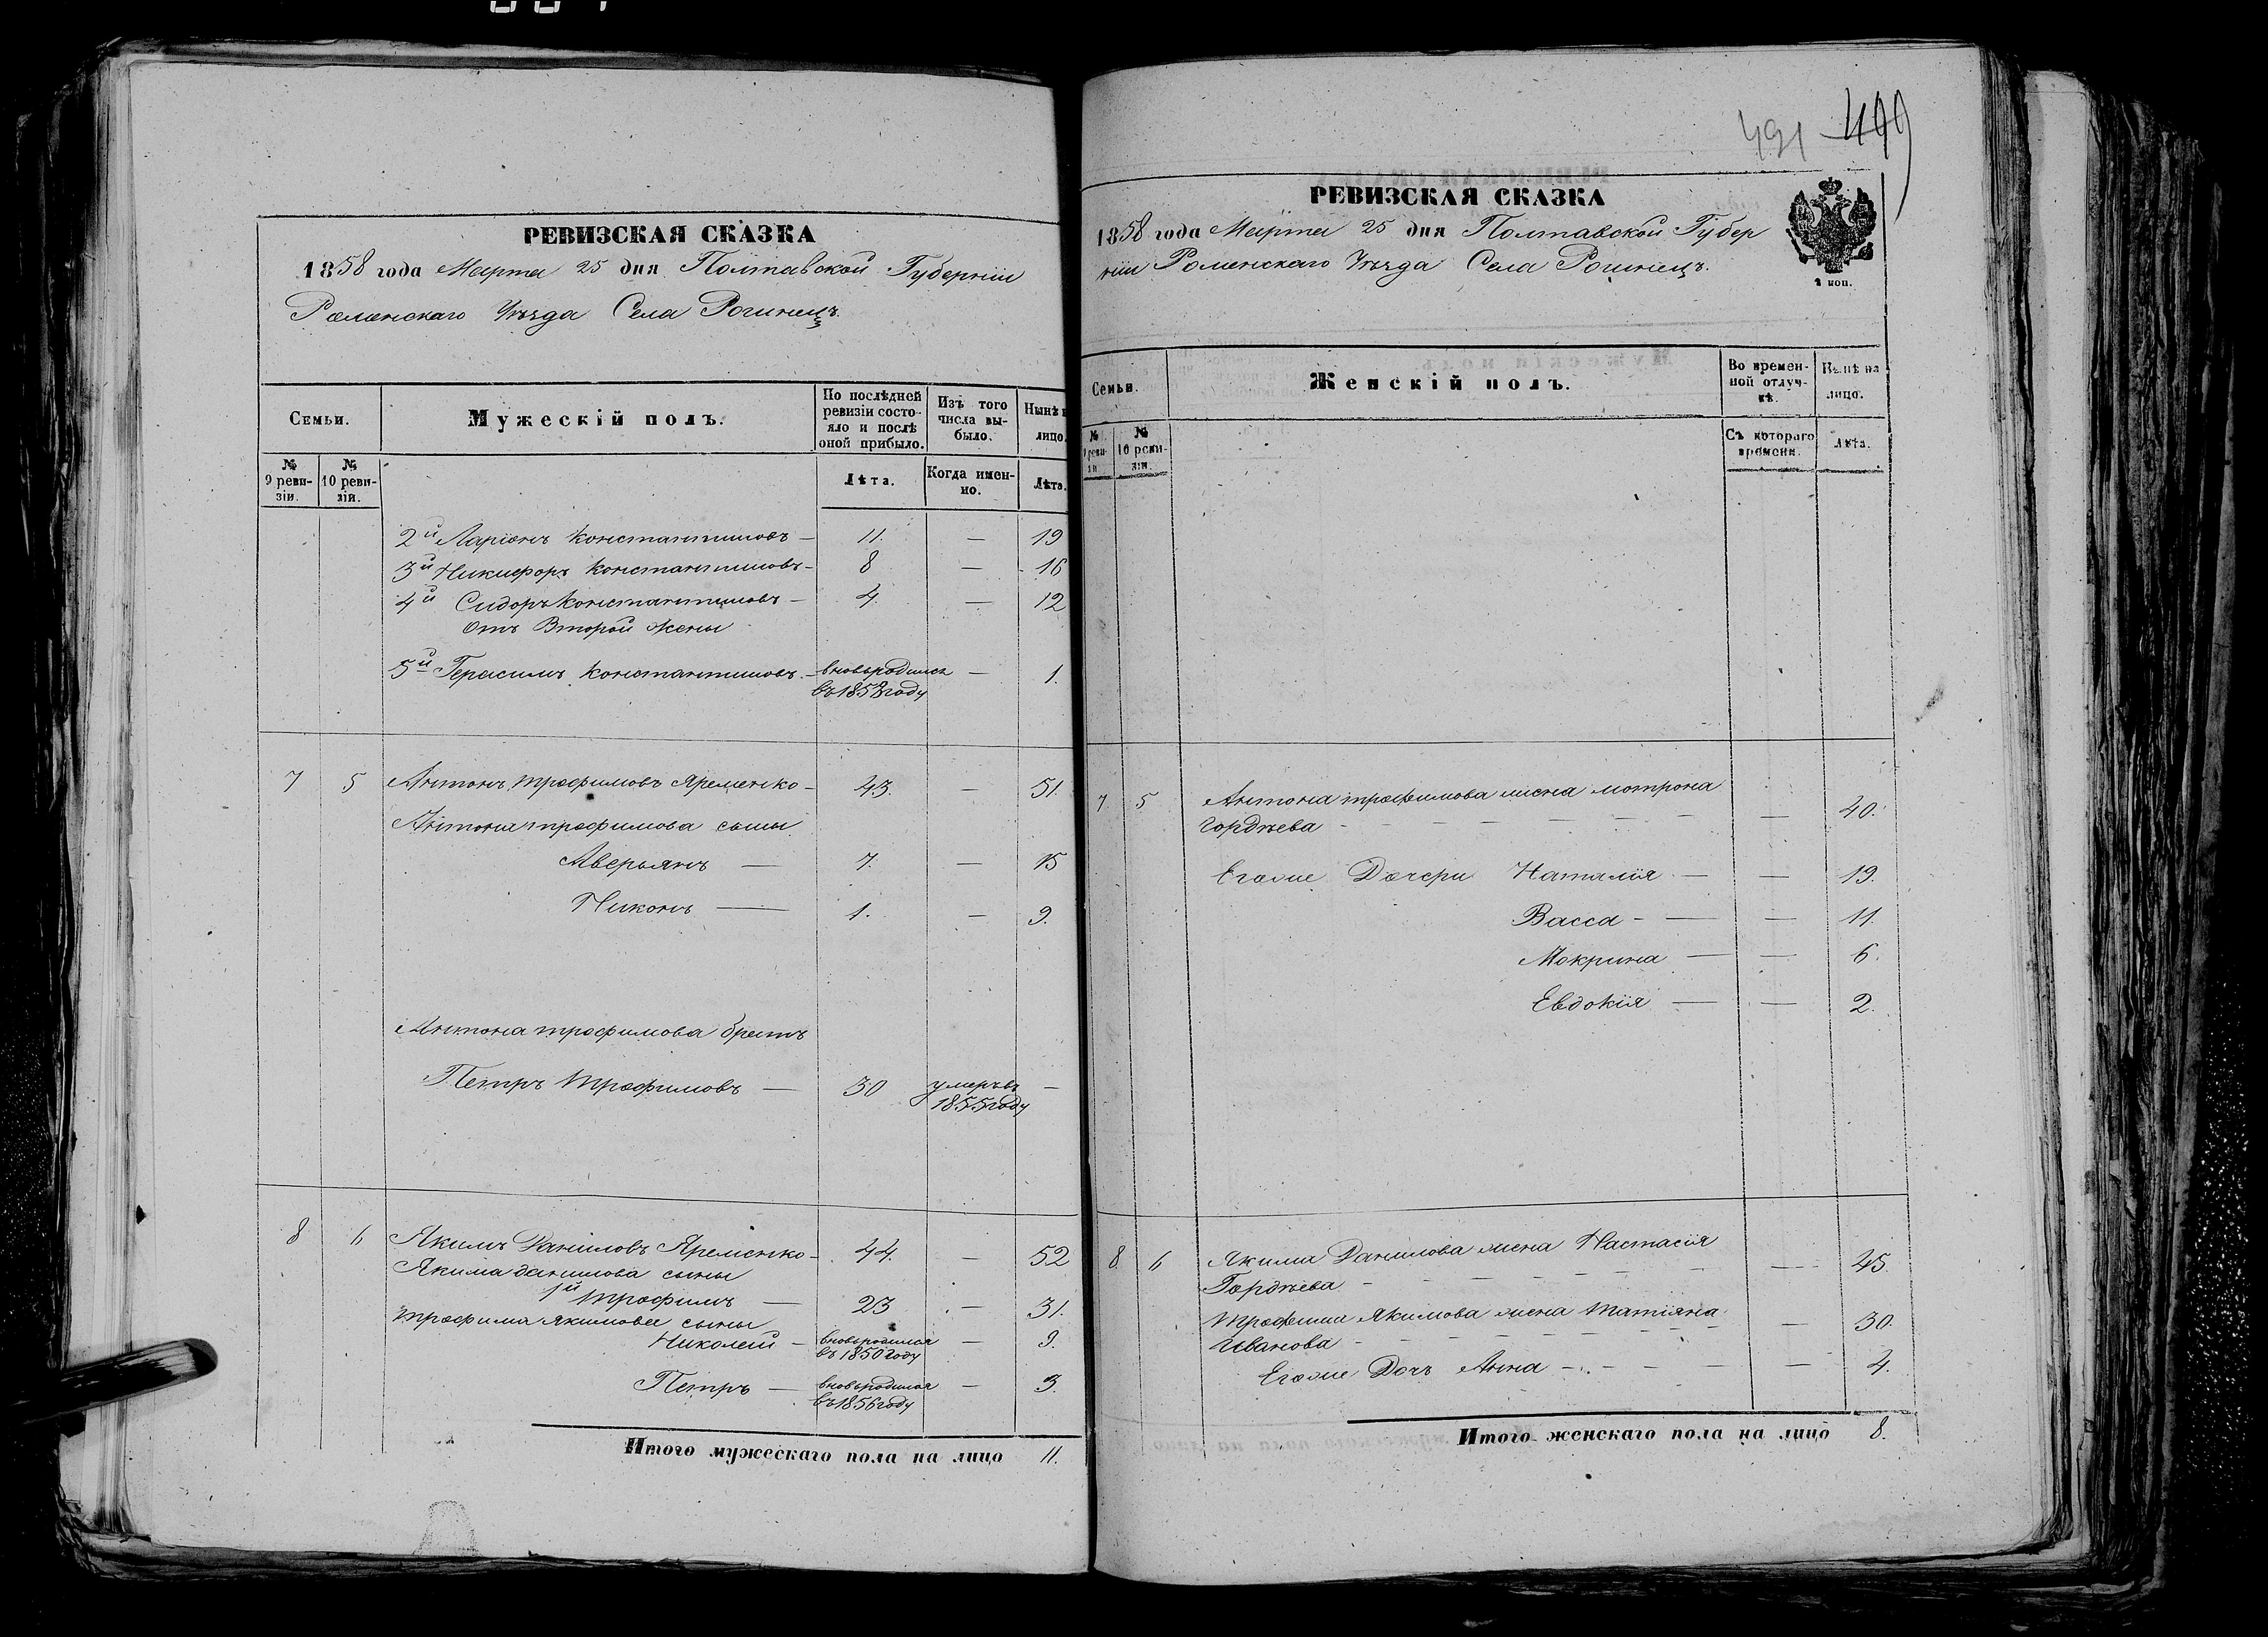 РЕВИЗСКАЯ СКАЗКА
1858 года Марта 25 дня Полтавской Губерніи
Роменскаго Уѣзда Села Рогинецъ.
Семьи.
Мужескій полъ.
По послѣдней ревизіи состояло и послѣ оной прибыло.
Изъ того числа выбыло.
Нынѣ
лицо.
№ 9 ревизіи.
№ 10 ревизіи.
Лѣта.
Когда именно.
Лѣта.
2й Ларіонъ Константиновъ — 11. — 19
3й Никифоръ Константиновъ — 8 — 16
4й Сидоръ Константиновъ — 4. — 12
Отъ Второй жены
5й Герасимъ Константиновъ — вновьродился — 1.
въ 1858 году
7 5 Антонъ Трофимовъ Яременко — 43. — 51.
Антона трофимова сыны
Аверьянъ — 7. — 15
Никонъ — 1. — 9.
Антона трофимова братъ
Петръ Трофимовъ — 30 умеръ въ —
1855 году
8 6 Якимъ Даниловъ Яременко — 44. — 52
Якима данилова сыны
1й Трофимъ — 23 — 31.
Трофима Якимова сыны
Николай — вновьродился — 9.
въ 1850 году
Петръ — вновьродился — 3.
въ 1856 году
Итого мужескаго пола на лицо 11.
491 499
РЕВИЗСКАЯ СКАЗКА
1858 года Марта 25 дня Полтавской Губер
ніи Роменскаго Уѣзда Села Рогинецъ.
2 коп.
Семьи.
Женскій полъ.
Во временной отлучкѣ.
Нынѣ на лицо.
№ 9 ревизіи
№ 10 ревизіи.
Съ котораго времени.
Лѣта.
7 5 Антона трофимова жена мотрона
Гордѣева — — 40.
Егоже Дочери Наталія — — 19.
Васса — — 11.
Мокрина — — 6.
Евдокія — — 2.
8 6 Якима Данилова жена Настасія
Гордѣева — — 45.
Трофима Якимова жена Татіяна
Иванова — — 30.
Егоже Дочъ Анна — — 4.
Итого женскаго пола на лицо 8.